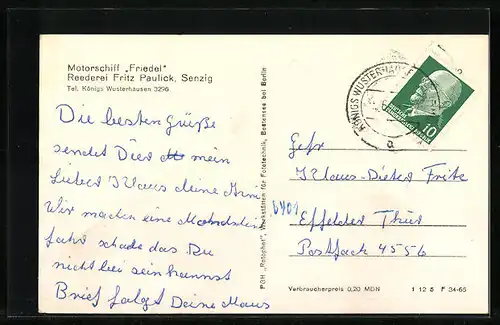 Motorschiff „Friedel"
Reederei Fritz Paulick, Senzig
Tel. Königs Wusterhausen 3296
Die besten grüße
sendet Dier mein
Lieber Klaus deine
Wir machen eine
fahrt schade das Du
nicht bei sein kannst
Brief folgt Deine Maus
PGH „Rotophot", Werkstätten für Fototechnik, Bestensee bei Berlin
KÖNIGS WUSTERHAUSEN
a
10
Gefr
Klaus-Dieter Fritz
6401
Effelder Thür
Postfach 4556
Verbraucherpreis 0,20 MDN
1 12 5 F 34-65